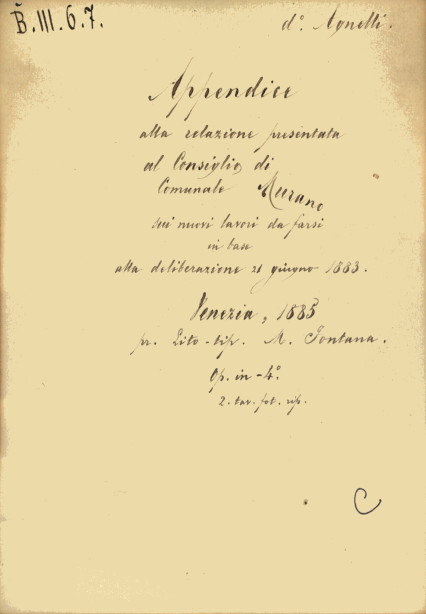 B.III.6.7.
d.º Agnelli.
Appendice
alla relazione presentata
al Consiglio di
Comunale Murano
sui nuovi lavori da farsi
in base
alla deliberazione 21 giugno 1883.
Venezia, 1883
pr. Lito-tip. M. Fontana.
Op. in-4.º
2. tav. fot. rip.
C